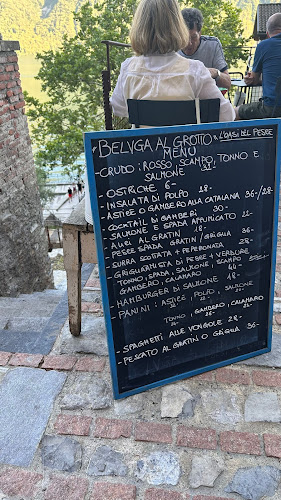 *BELVGA AL GROTTO* L'OASI DEL PESCE
MENU
CRUDO: ROSSO, SCAMPO, TONNO E
SALMONE
OSTRICHE 6-
INSALATA DI POLPO 18-
ASTICE O GAMBERO ALLA CATALANA 36-/28-
COCKTAIL DI GAMBERI 30-
SALMONE E SPADA AFFUMICATO 21-
ALICI AL GRATIN 18-
PESCE SPADA GRATIN/GRIGLIA 36-
SURRA SCOTTATA + PEPERONATA 28-
GRIGLIATA MISTA DI PESCE + VERDURE
TONNO, SPADA, SALMONE, SCAMPO
GAMBERO, CALAMARO 44-
HAMBURGER DI SALMONE 28-
PANINI: ASTICE, POLPO, SALMONE
TONNO, GAMBERO, CALAMARO
SPAGHETTI ALLE VONGOLE 28-
PESCATO AL GRATIN O GRIGLIA 36-